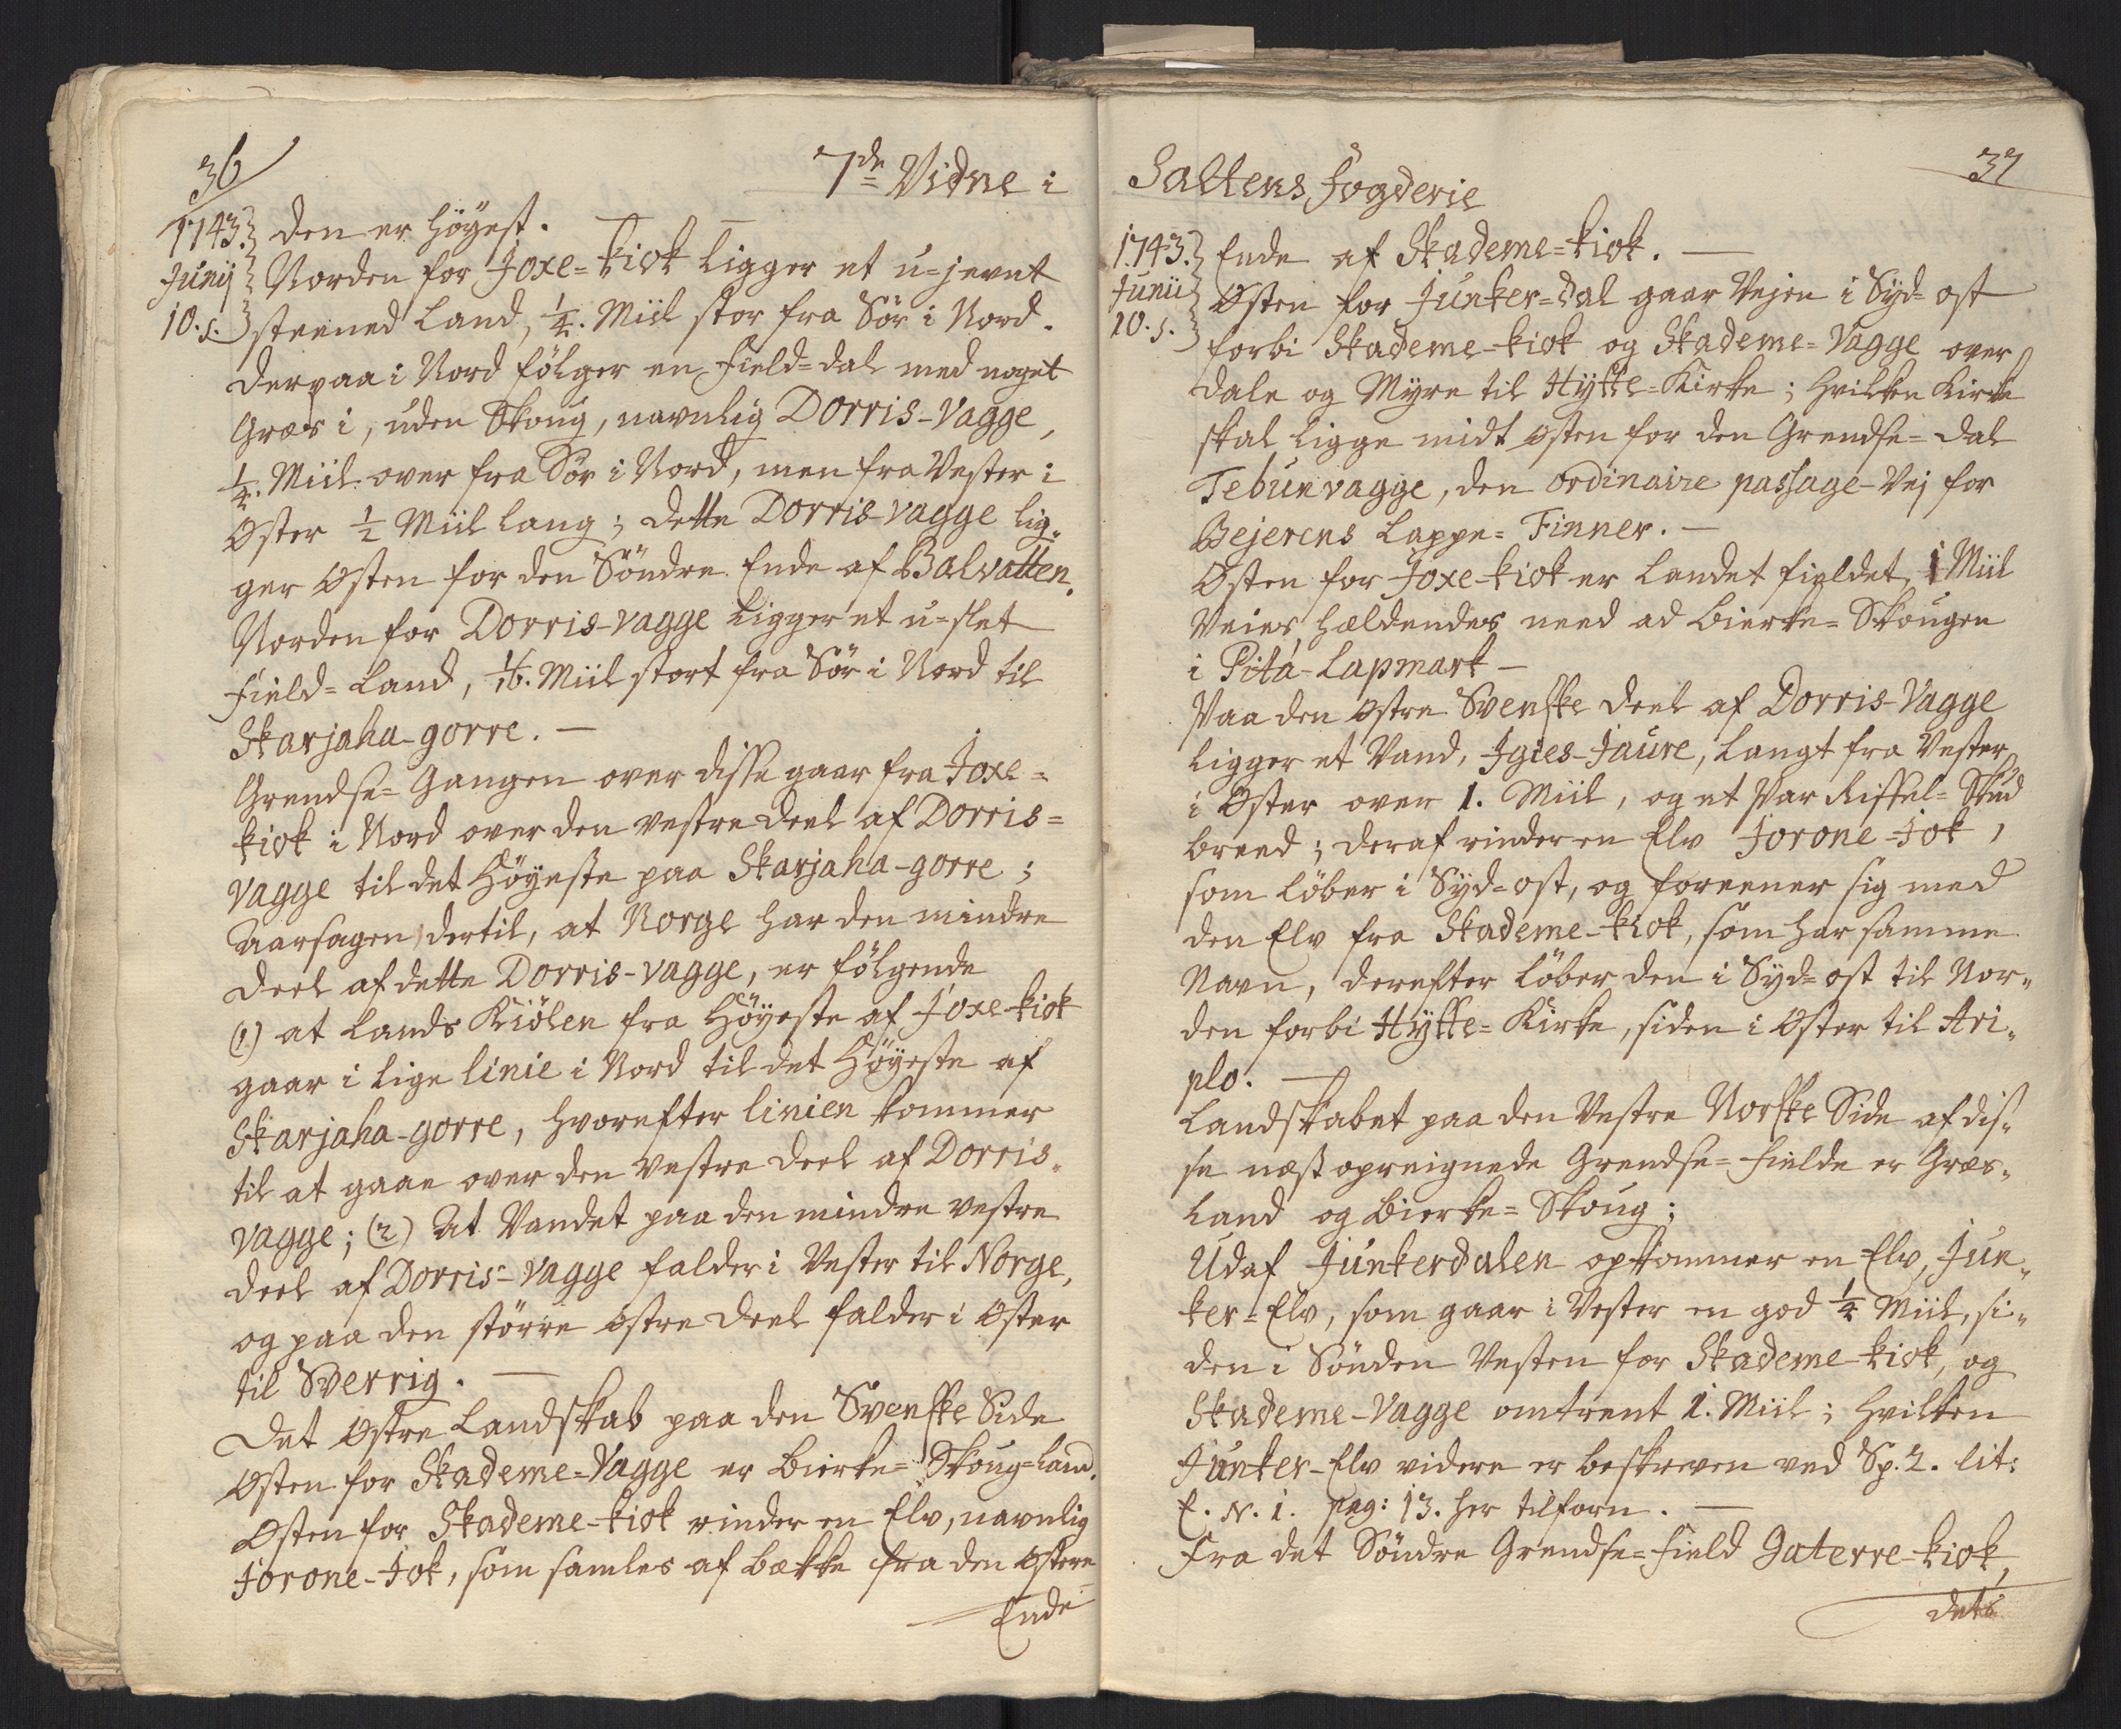 36
7de Vidne i
1743.
Junij
10. s.
den er Höyest.
Norden for Joxe-kiok ligger et u-jevnt
steened Land, 1/4. Miil stor fra Sör i Nord.
Derpaa i Nord fölger en Field-dal med noget
Græs i, uden Skoug, navnlig Dorris-Vagge,
1/4. Miil over fra Sör i Nord, men fra Vester i
Oster 1/2 Miil lang; dette Dorris-vagge lig-
ger Osten for den Söndre Ende af Balvatten.
Norden for Dorris-vagge ligger et u-slet
Field-Land, 1/16. Miil stort fra Sör i Nord til
Skarjaha-gorre. —
Grendse-Gangen over disse gaar fra Joxe-
kiok i Nord over den vestre deel af Dorris-
vagge til det Höyeste paa Skarjaha-gorre;
Aarsagen dertil, at Norge har den mindre
deel af dette Dorris-vagge, er fölgende
(1.) at Lands Kiölen fra Höyeste af Joxe-kiok
gaar i lige linie i Nord til det Höyeste af
Skarjaha-gorre, hvorefter linien kommer
til at gaae over den vestre deel af Dorris-
vagge; (2) At Vandet paa den mindre vestre
deel af Dorris-vagge falder i Vester til Norge,
og paa den större östre deel falder i Oster
til Sverrig. —
Det Ostre Landskab paa den Svenske Side
Osten for Skademe-Vagge er Bierke-Skoug-Land.
Osten for Skademe-kiok rinder en Elv, navnlig
Jorone-Jok, som samles af Bække fra den Ostere
Ende
Saltens Fogderie
37
1743.
Junii
10. s.
Ende af Skademe-kiok. —
Osten for Junker-dal gaar Vejen i Syd-ost
forbi Skademe-kiok og Skademe-Vagge over
Dale og Myre til Hytte-Kirke; hvilken Kirke
skal ligge midt Osten for den Grendse-dal
Tebunvagge, den ordinaire passage-Vej for
Bejerens Lappe-Finner. —
Osten for Joxe-kiok er Landet fieldet, 1 Miil
Veies hældendes need ad Bierke-Skougen
i Pitå-Lapmark —
Paa den Ostre Svenske deel af Dorris-Vagge
ligger et Vand, Igies-Jaure, langt fra Vester
i Oster over 1. Miil, og et Par Riffel-Skud
breed; deraf rinder en Elv Jorone-Jok,
som löber i Syd-ost, og foreener sig med
den Elv fra Skademe-kiok, som har samme
Navn, derefter löber den i Syd-ost til Nor-
den forbi Hytte-Kirke, siden i Oster til Ari-
plo. —
Landskabet paa den Vestre Norske Side af dis-
se næst opreignede Grendse-Fielde er Græs-
Land og Bierke-Skoug;
Udaf Junkerdalen opkommer en Elv, Jun-
ker-Elv, som gaar i Vester en god 1/4 Miil, si-
den i Sönden Vesten for Skademe-kiok, og
Skademe-Vagge omtrent 1. Miil; hvilken
Junker-Elv videre er beskreven ved Sp. 2. lit:
E. N. 1. pag: 13. her tilforn. —
Fra det Söndre Grendse-Field Gaterre-kiok,
dets